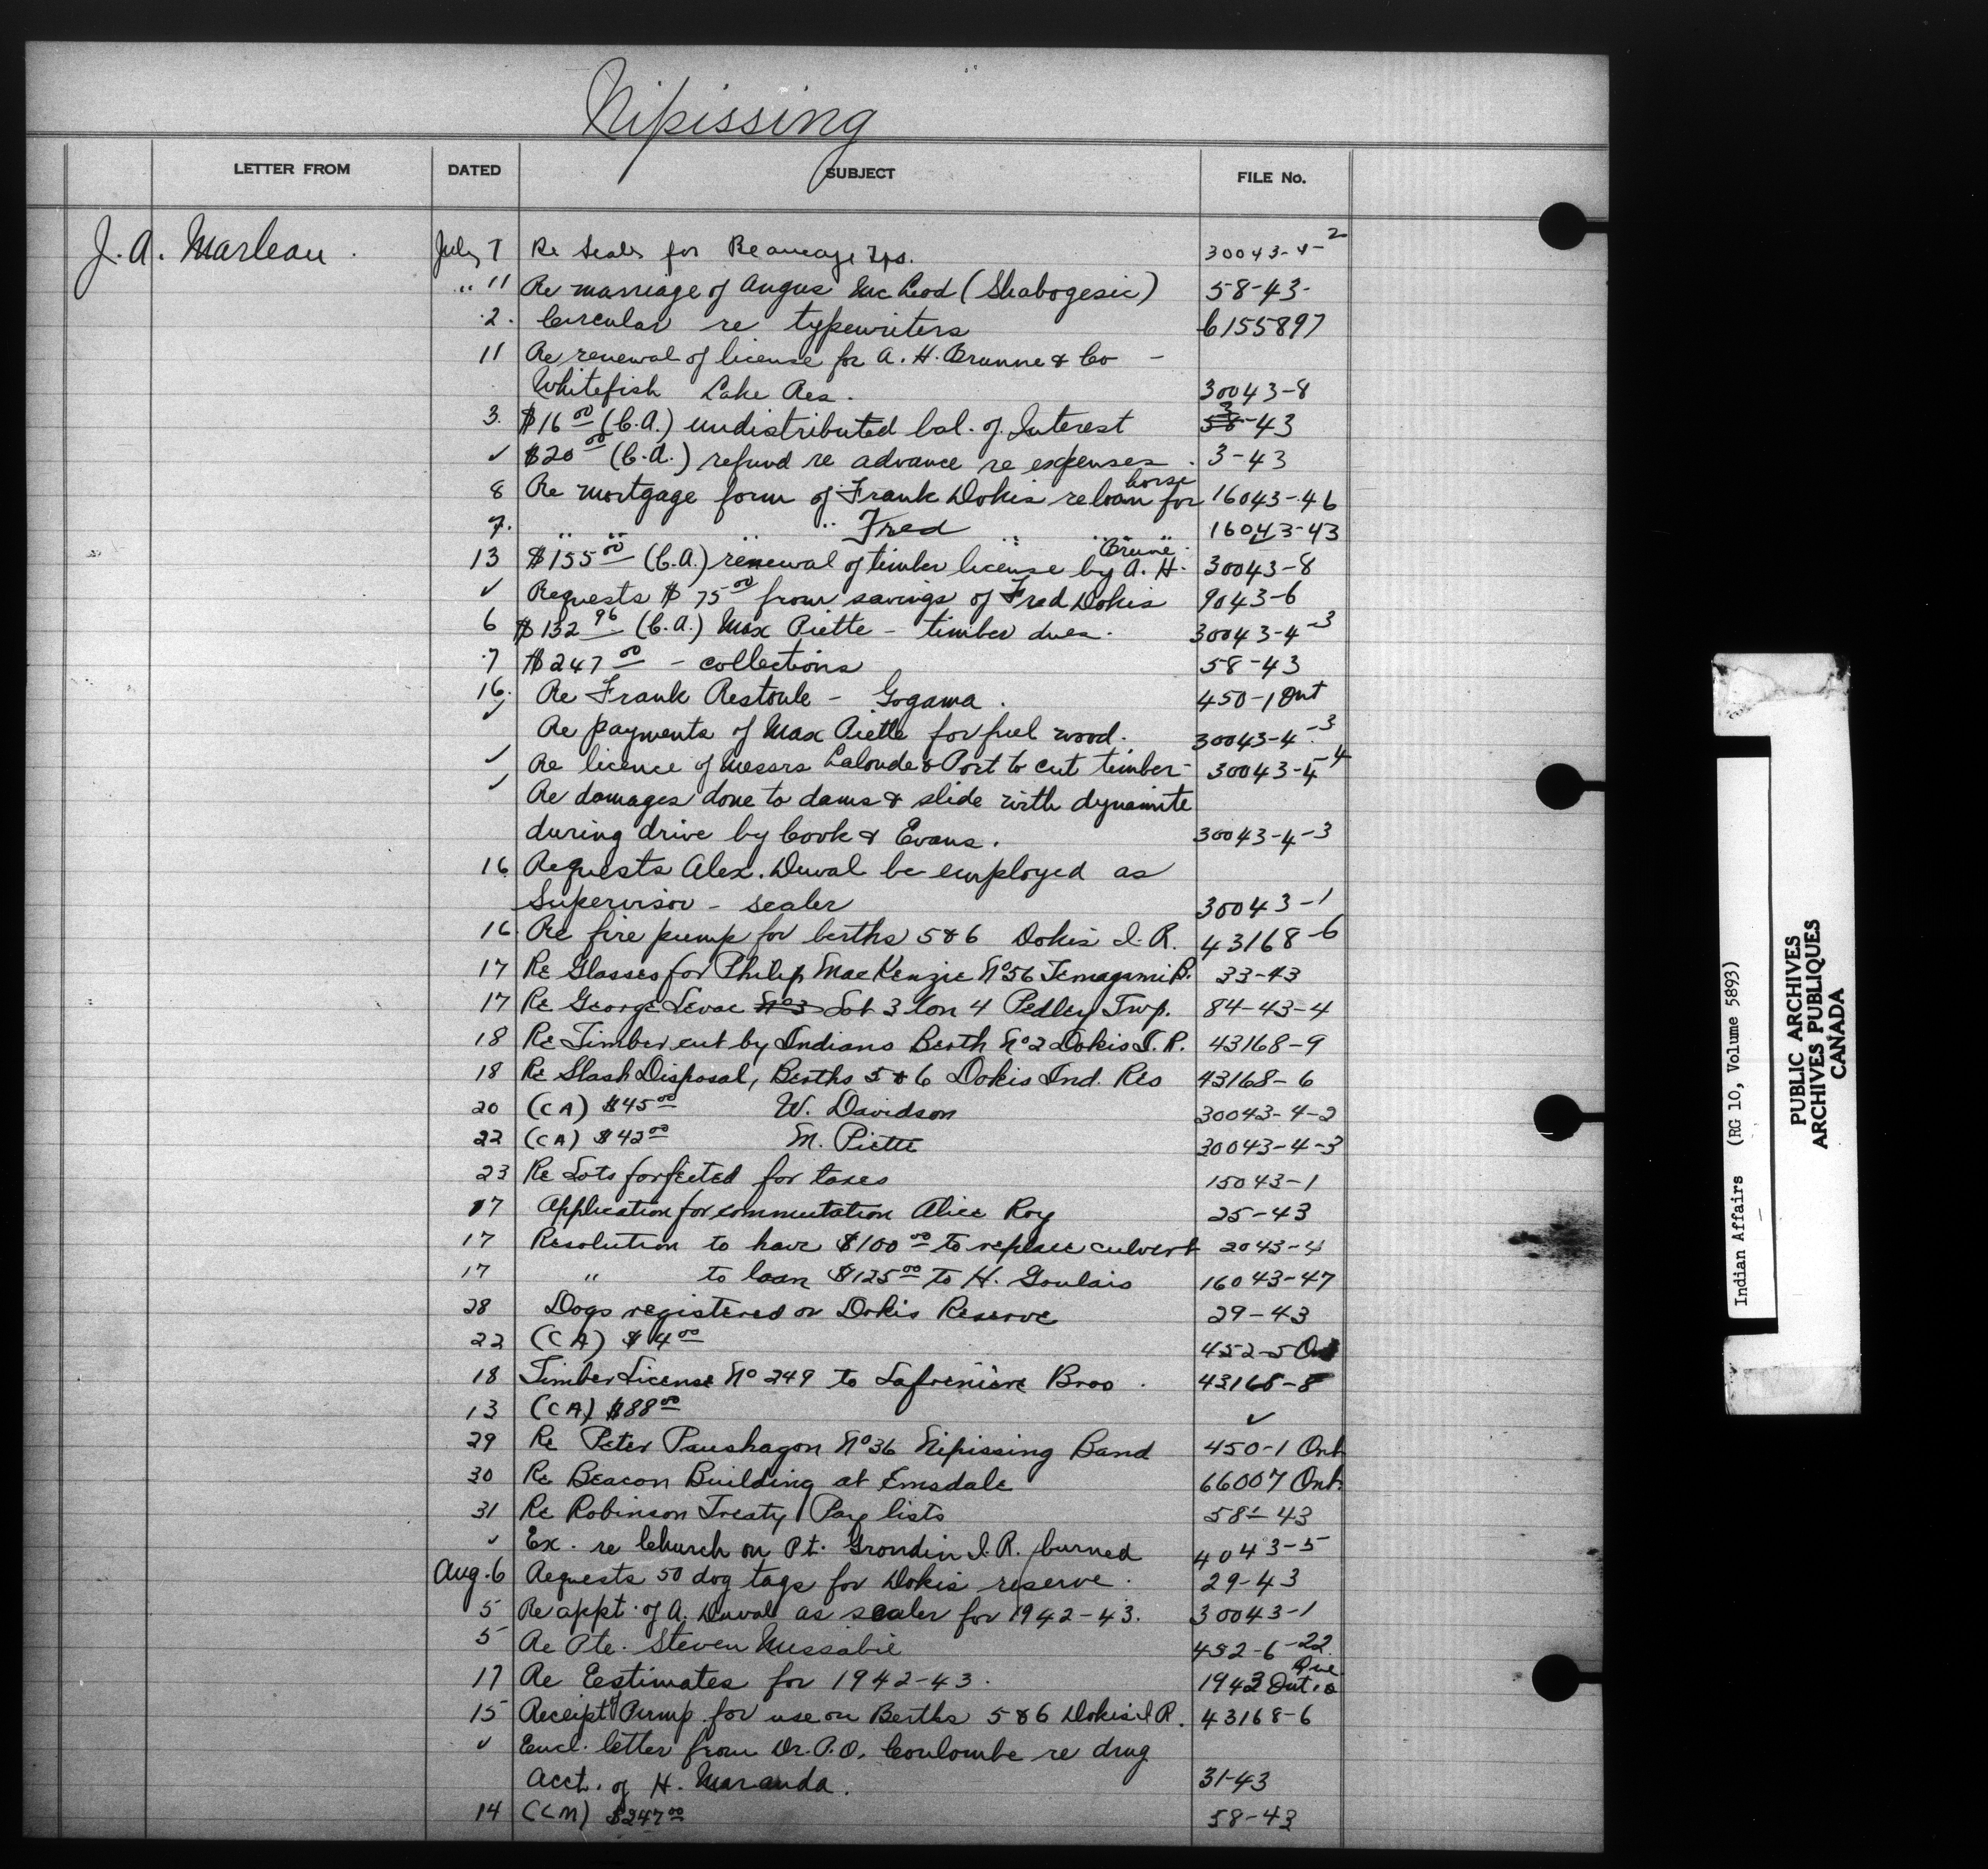 Nipissing
LETTER FROM DATED SUBJECT FILE No.
J. A. Marleau. July 7 Re Seals for Beaucage Tps. 30043-4-2
" 11 Re marriage of Angus McLeod (Shabogesic) 58-43-
2. Circular re typewriters C155897
11 Re renewal of license for A. H. Brunne & Co -
Whitefish Lake Res. 30043-8
3. $16 00 (C.A.) undistributed bal. of Interest 3-43
✓ $20 00 (C.A.) refund re advance re expenses. 3-43
8 Re mortgage form of Frank Dokis re loan for horse 16043-46
7. " " " Fred " " " 16043-43
13 $155 00 (C.A.) renewal of timber license by A. H. Brune. 30043-8
✓ Requests $75 00 from savings of Fred Dokis 9043-6
6 $132 96 (C.A.) Max Piette - timber dues. 30043-4-3
7 $247 00 - collections 58-43
16. Re Frank Restoule - Gogama. 450-1 Ont
✓ Re payments of Max Piette for fuel wood. 30043-4-3
✓ Re licence of Messrs Lalonde & Port to cut timber - 30043-4-4
✓ Re damages done to dams & slide with dynamite
during drive by Cook & Evans. 30043-4-3
16 Requests Alex. Duval be employed as
Supervisor - scaler 30043-1
16. Re fire pump for berths 5 & 6 Dokis I. R. 43168-6
17 Re Glasses for Philip MacKenzie No 56 Temagami B. 33-43
17 Re George Levac No 3 Lot 3 Con 4 Pedley Twp. 84-43-4
18 Re Timber cut by Indians Berth No 2 Dokis I. R. 43168-9
18 Re Slash Disposal, Berths 5 & 6 Dokis Ind. Res 43168-6
20 (CA) $45 00 W. Davidson 30043-4-2
22 (CA) $42 00 M. Piette 30043-4-3
23 Re Lots forfeited for taxes 15043-1
17 Application for commutation Alice Roy 25-43
17 Resolution to have $100 00 to replace culvert 2043-4
17 " to loan $125 00 to H. Goulais 16043-47
28 Dogs registered on Dokis Reserve 29-43
22 (CA) $4 00 452-5 Ont
18 Timber License No 249 to Lafreniere Bros. 43168-8
13 (CA) $88 00 ✓
29 Re Peter Paushagon No 36 Nipissing Band 450-1 Ont
30 Re Beacon Building at Emsdale 66007 Ont.
31 Re Robinson Treaty Pay lists 58-43
✓ Ex. re Church on Pt. Grondin I.R. burned 4043-5
Aug. 6 Requests 50 dog tags for Dokis reserve. 29-43
5 Re appt. of A. Duval as scaler for 1942-43. 30043-1
5 Re Pte. Steven Missabie 452-6-22
17 Re Eestimates for 1942-43. 1943 Ont.
15 Receipt of Pump for use on Berths 5 & 6 Dokis I R. 43168-6
✓ Encl. letter from Dr. P.O. Coulombe re drug
Acct. of H. Maranda. 31-43
14 (CM) $247 00 58-43
Indian Affairs (RG 10, Volume 5893)
PUBLIC ARCHIVES
ARCHIVES PUBLIQUES
CANADA